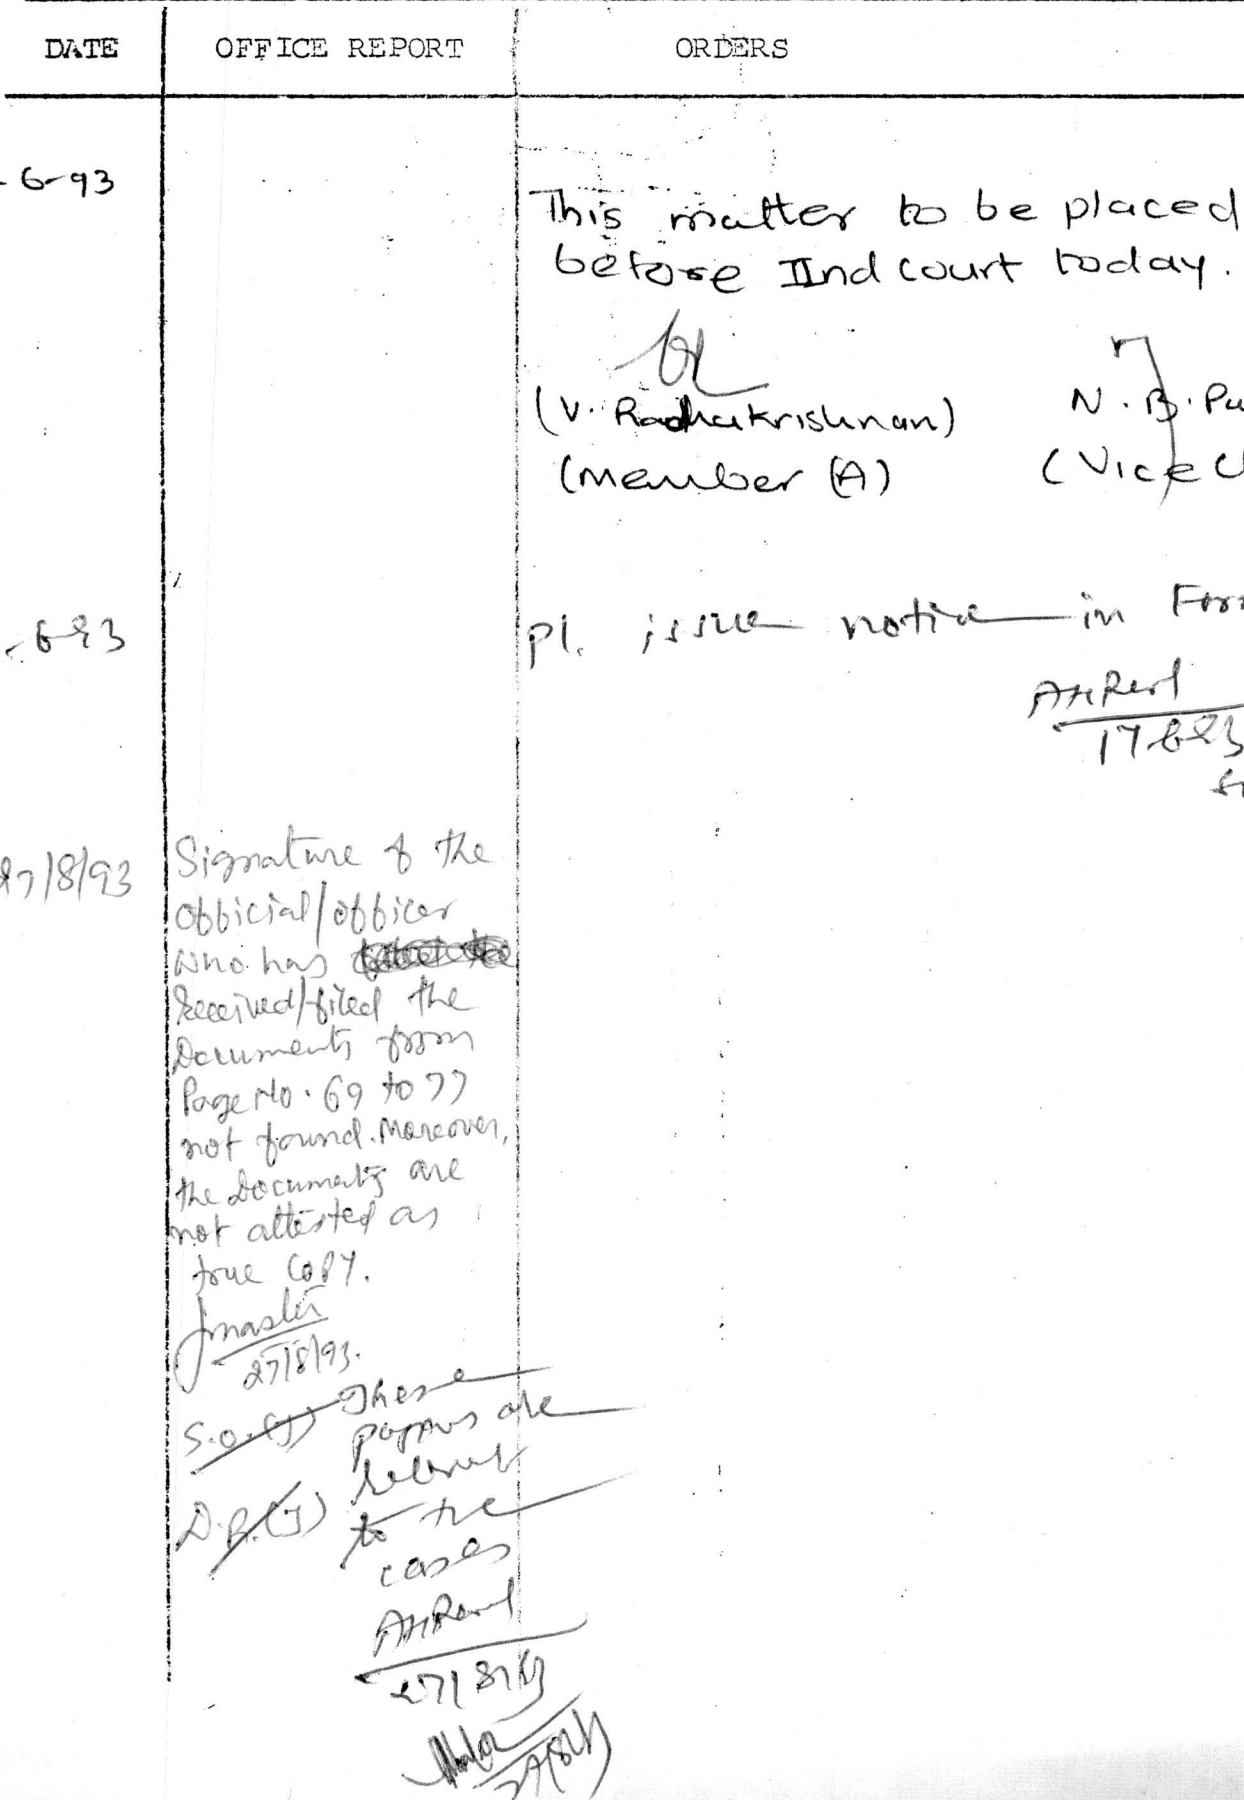 DATE OFFICE REPORT ORDERS
-6-93
This matter to be placed
before IInd court today.
(V. Radhakrishnan) N. B. Pa
(Member (A) (Vice C
-6-93
pl. issue notice in For
17 6 93
27/8/93
Signature of the
official/officer
who has
received/filed the
Documents from
Page No. 69 to 77
not found. Moreover,
the Documents are
not attested as
true copy.
27/8/93.
S.O.(J) These
papers are
relevant
D.R.(J) to the
cases
27/8/93
27/8/93